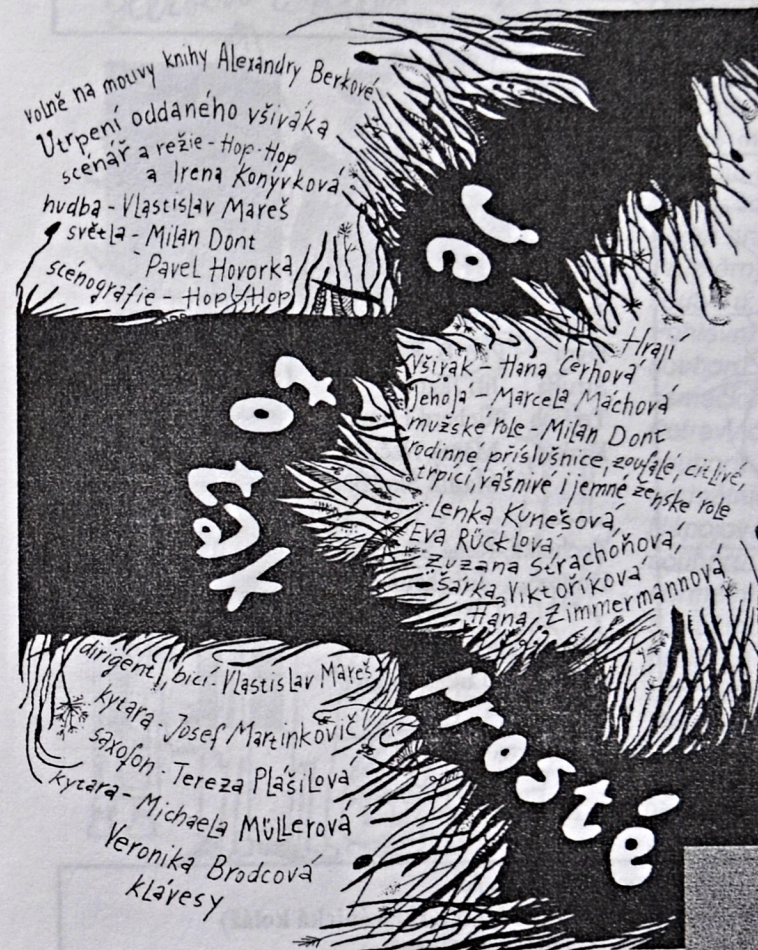 volně na motivy knihy Alexandry Berkové
Utrpení oddaného všiváka
scénář a režie - Hop-Hop
a Irena Konývková
hudba - Vlastislav Mareš
světla - Milan Dont
Pavel Hovorka
scénografie - Hop-Hop
Je
to
tak
prosté
Hrají
Všivák - Hana Čerhová
Jehojá - Marcela Máchová
mužské role - Milan Dont
rodinné příslušnice, zoufalé, citlivé,
trpící, vášnivé i jemné ženské role
Lenka Kunešová,
Eva Rücklová,
Zuzana Strachoňová,
Šárka Viktoříková
Hana Zimmermannová
dirigent, bicí - Vlastislav Mareš
kytara - Josef Martinkovič
saxofon - Tereza Plášilová
kytara - Michaela Müllerová
Veronika Brodcová
klávesy